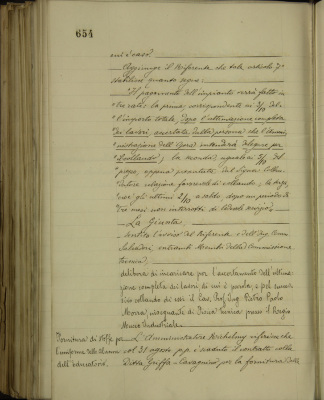 654
Aggiunge il Riferente che tale articolo 7°
stabilisce quanto segue:
"Il pagamento dell'impianto verrà fatto in
tre rate: la prima, corrispondente ai 5/10 del-
l'importo totale, dopo l'ultimazione completa
dei lavori, accertata dalla persona che l'Ammi-
nistrazione dell'Opera intenderà delegare pel
Collaudo; la seconda, eguale ai 3/10 del
prezzo, appena presentata dal Signor Collau-
datore relazione favorevole di collaudo; la terza,
per gli ultimi 2/10 a saldo dopo un periodo di
tre mesi non interrotti di
La Giunta,
sentito l'avviso del Riferente e dell'Ing. Cav.
Salvadori entrambi Membri della Commissione
tecnica,
delibera di incaricare per l'accertamento dell'ultima-
zione completa dei lavori di cui è parola, e pel succes-
sivo collaudo di essi il Cav. Prof. Ing. Pietro Paolo
Morra insegnante di Fisica Tecnica presso il Regio
Museo Industriale.
Fornitura di stoffe per
l'uniforme delle Alunne
dell'educatorio.
L'Amministratore riferisce che
col 31 agosto p.p. è scaduto il contratto colla
Ditta Griffa-Cavagnino per la fornitura delle